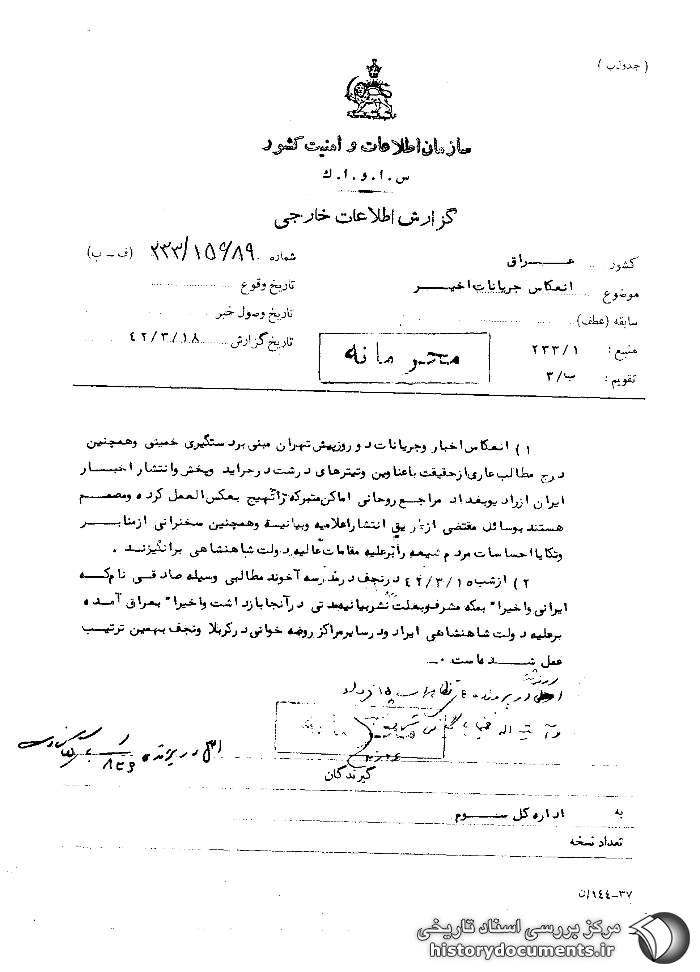 ( جدول ب )
سازمان اطلاعات و امنیت کشور
س . ا . و . ا . ك
گزارش اطلاعات خارجی
کشور عراق
موضوع انعکاس جریانات اخیر
سابقه (عطف)
منبع : ۲۳۳/۱
تقویم : ب/۳
شماره ۲۳۳/۱۵۶۸۹ (ف - ب)
تاریخ وقوع
تاریخ وصول خبر
تاریخ گزارش ۴۲/۳/۱۸
محرمانه
۱ ) انعکاس اخبار وجریانات دو روز پیش تهران مبنی بردستگیری خمینی وهمچنین
درج مطالب عاری ازحقیقت باعناوین وتیترهای درشت درجراید وپخش وانتشار اخبار
ایران ازرادیوبغداد مراجع روحانی اماکن متبرکه راتهییج بعکس العمل کرده ومصمم
هستند بوسائل مقتضی ازطریق انتشاراعلامیه وبیانیه وهمچنین سخنرانی ازمنابر
وتکایا احساسات مردم شیعه را برعلیه مقامات عالیه دولت شاهنشاهی برانگیزند .
۲ ) ازشب ۴۲/۳/۱۵ درنجف درمدرسه آخوند مطالبی وسیله صادقی نام که
ایرانی واخیرا" بمکه مشرف وبعلت نشربیانیه مدتی درآنجا بازداشت واخیرا" بعراق آمده
برعلیه دولت شاهنشاهی ایراد ودرسایرمراکز روضه خوانی درکربلا ونجف بهمین ترتیب
عمل شده است .
اصل در پرونده تظاهرات ۱۵ خرداد
اصل در پرونده
گیرندگان
به اداره کل سوم
تعداد نسخه
۱۴۴-۳۷/ن
مرکز بررسی اسناد تاریخی
historydocuments.ir